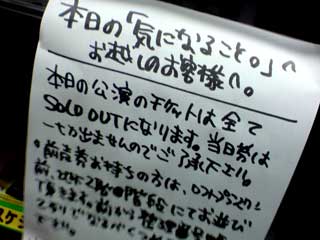 本日の「気になること。」へ
お越しのお客様へ。
本日の公演のチケットは全て
SOLD OUTになります。当日券は
一切出ませんのでご了承下さい。
・前売券お持ちの方は、ロフトプラスワン
前、地下2階の階段にてお並び
頂きます。前から整理番号順